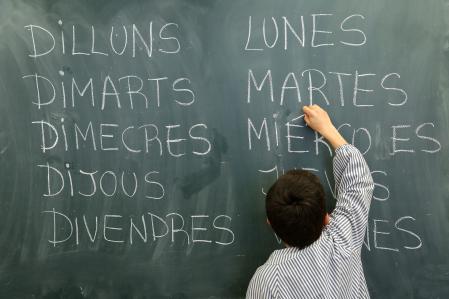 DiLLUNS
DiMARTS
DiMECRES
DiJOUS
DiVENDRES
LUNES
MARTES
MiERCOLES